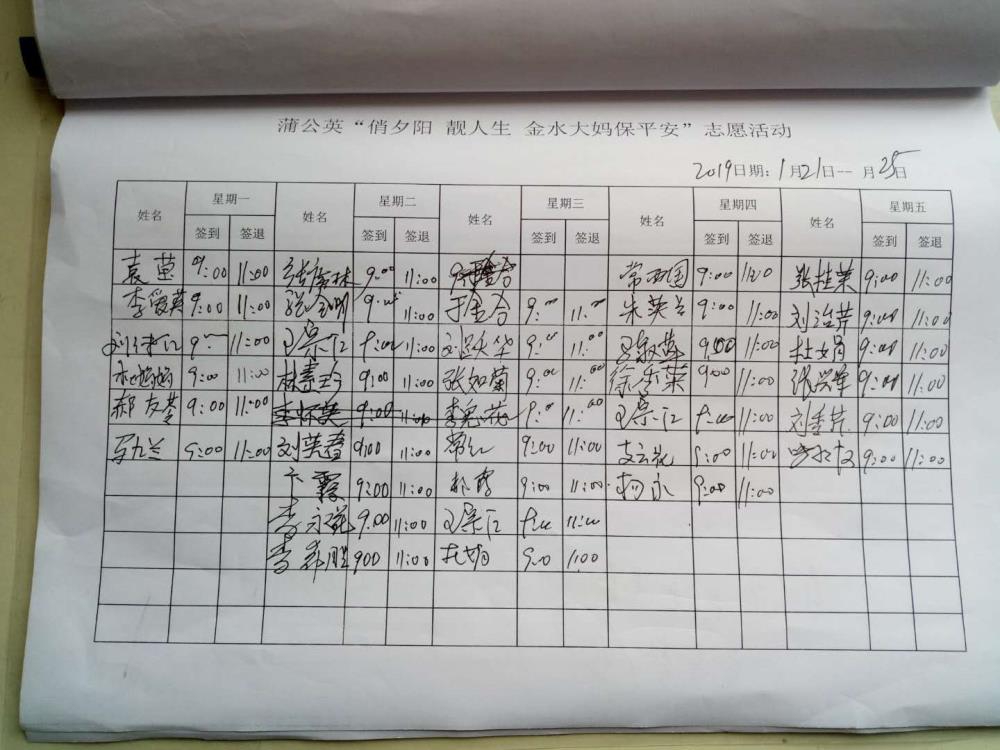 蒲公英“俏夕阳 靓人生 金水大妈保平安”志愿活动
2019日期：1月21日--月25日
姓名 星期一 姓名 星期二 姓名 星期三 姓名 星期四 姓名 星期五
签到 签退 签到 签退 签到 签退 签到 签退 签到 签退
袁茧 9:00 11:00 9:00 11:00 9:00 11:20 张桂荣 9:00 11:00
李爱英 9:00 11:00 张金明 9:00 11:00 于金合 9:00 11:00 朱英兰 9:00 11:00 刘治芹 9:00 11:00
9:00 11:00 王宗江 9:00 11:00 刘跃华 9:00 11:00 王敏革 9:00 11:00 杜娟 9:00 11:00
9:00 11:00 林素玲 9:00 11:00 张如菊 9:00 11:00 徐秀荣 900 11:00 张兴华 9:00 11:00
郝友苓 9:00 11:00 李怀英 9:00 11:00 9:00 11:00 王宗江 9:00 11:00 刘季芹 9:00 11:00
马九兰 9:00 11:00 刘英春 9:00 11:00 常红 9:00 11:00 支云花 9:00 11:00 9:00 11:00
卞霞 9:00 11:00 9:00 11:00 杨永 9:00 11:00
李永 9:00 11:00 王宗江 9:00 11:00
李希胜 900 11:00 杜娟 9:00 1100